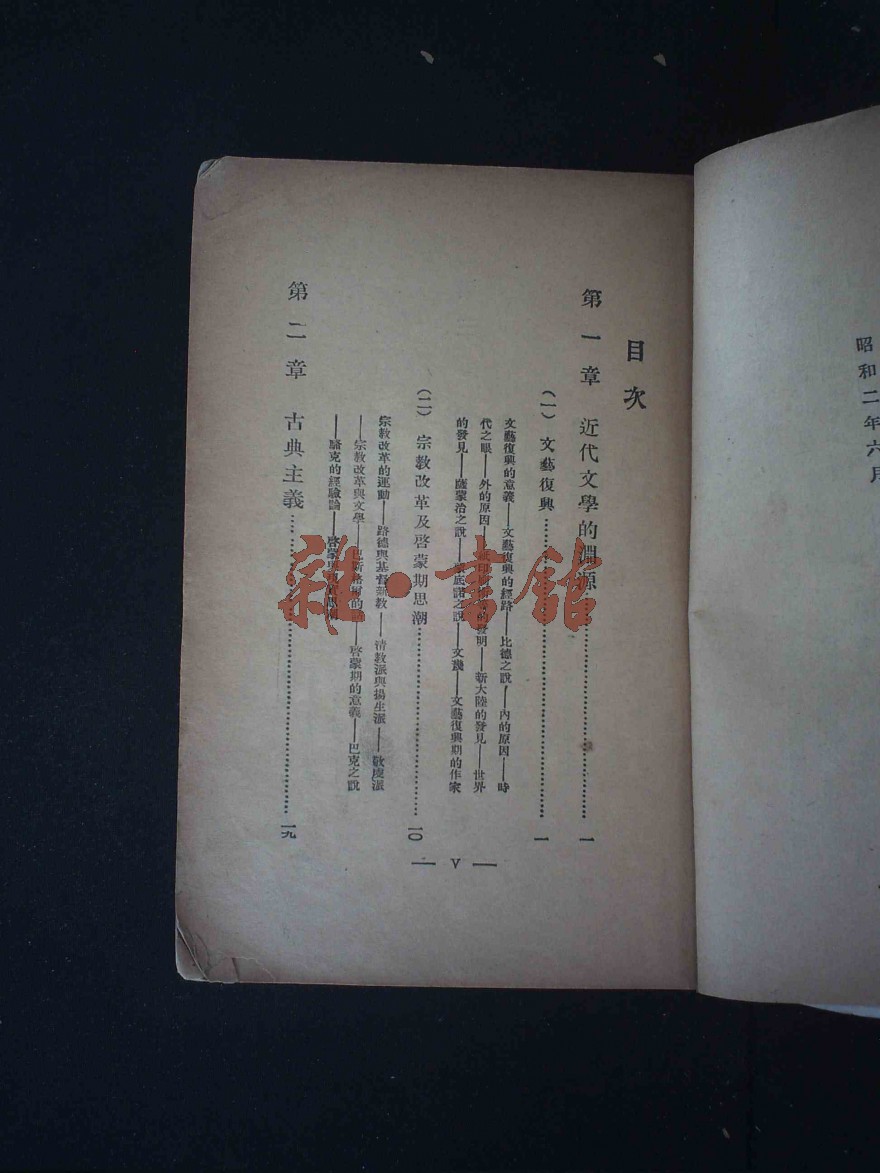 昭和二年六月
目次
第一章 近代文學的淵源……一
(一) 文藝復興……一
文藝復興的意義——文藝復興的經路——比德之說——內的原因——時
代之眼——外的原因——的發明——新大陸的發見——世界
的發見——薩蒙治之說——底諾之說——文藝復興期的作家
(二) 宗教改革及啓蒙期思潮……一〇
宗教改革的運動——路德與基督新教——清教派與揚生派——敬虔派
——宗教改革與文學——巴斯格爾的——啓蒙期的意義——巴克之說
——駱克的經驗論——啓蒙
第二章 古典主義……一九
— V —
雜·書館